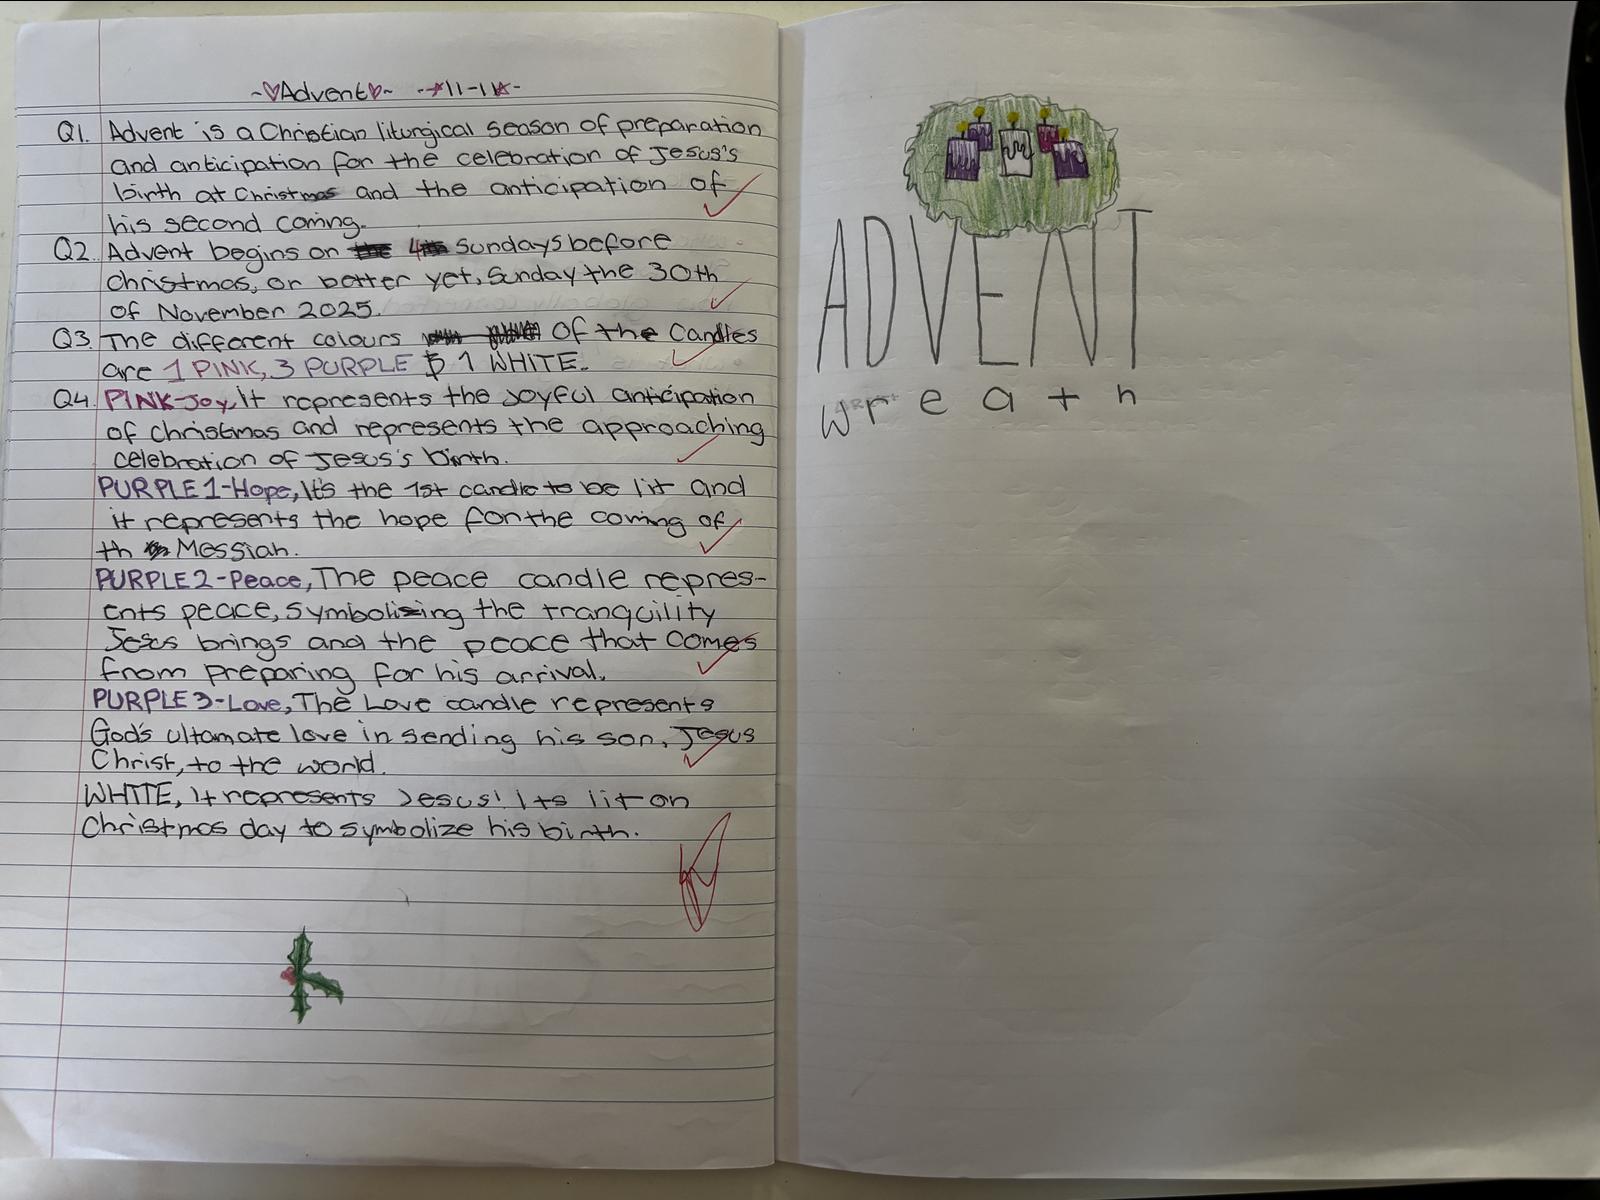 ~♡Advent♡~ -☆11-11☆-
Q1. Advent is a Christian liturgical season of preparation
and anticipation for the celebration of Jesus's
birth at Christmas and the anticipation of
his second coming.
Q2. Advent begins on 4 Sundays before
christmas, or better yet, Sunday the 30th
of November 2025.
Q3. The different colours of the candles
are 1 PINK, 3 PURPLE $ 1 WHITE.
Q4. PINK-Joy, It represents the Joyful anticipation
of christmas and represents the approaching
celebration of Jesus's birth.
PURPLE 1-Hope, It's the 1st candle to be lit and
it represents the hope for the coming of
th Messiah.
PURPLE 2-Peace, The peace candle repres-
ents peace, symbolizing the tranquility
Jesus brings and the peace that comes
from preparing for his arrival.
PURPLE 3-Love, The Love candle represents
God's ultamate love in sending his son, Jesus
Christ, to the world.
WHITE, It represents Jesus! Its lit on
Christmas day to symbolize his birth.
ADVENT
wreath